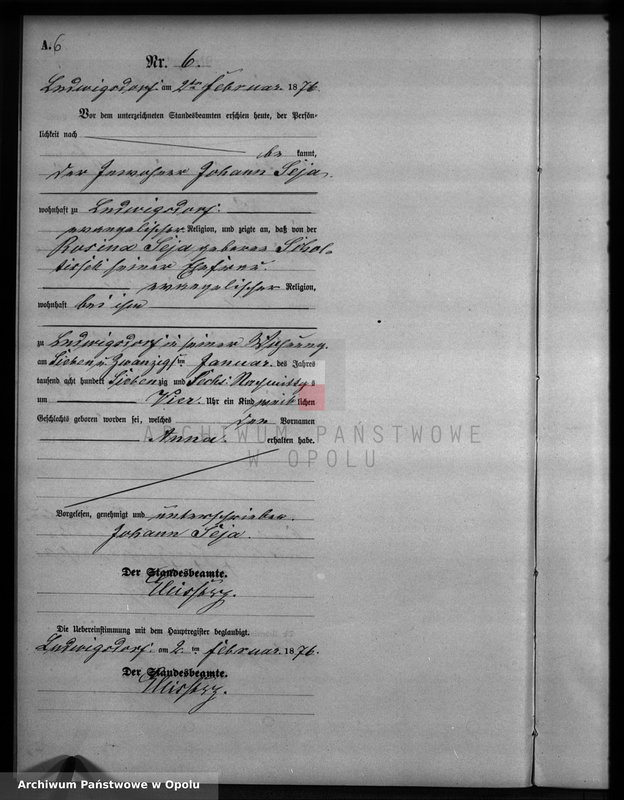 A. 6
Nr. 6.
Ludwigsdorf am 2ten Februar 1876.
Vor dem unterzeichneten Standesbeamten erschien heute, der Persön-
lichkeit nach
be kannt,
der Inwohner Johann Seja,
wohnhaft zu Ludwigsdorf.
evangelischer Religion, und zeigte an, daß von der
Rosina Seja geborene
seiner Ehefrau.
evangelischer Religion,
wohnhaft bei ihm
zu Ludwigsdorf in seiner Wohnung
am Sieben u Zwanzigsten Januar des Jahres
tausend acht hundert Siebenzig und Sechs Nachmittags
um Vier Uhr ein Kind weiblichen
Geschlechts geboren worden sei, welches den Vornamen
Anna. erhalten habe.
Vorgelesen, genehmigt und unterschrieben.
Johann Seja.
Der Standesbeamte.
Die Uebereinstimmung mit dem Hauptregister beglaubigt.
Ludwigsdorf am 2. ten Februar 1876.
Der Standesbeamte.
ARCHIWUM PAŃSTWOWE
W OPOLU
Archiwum Państwowe w Opolu